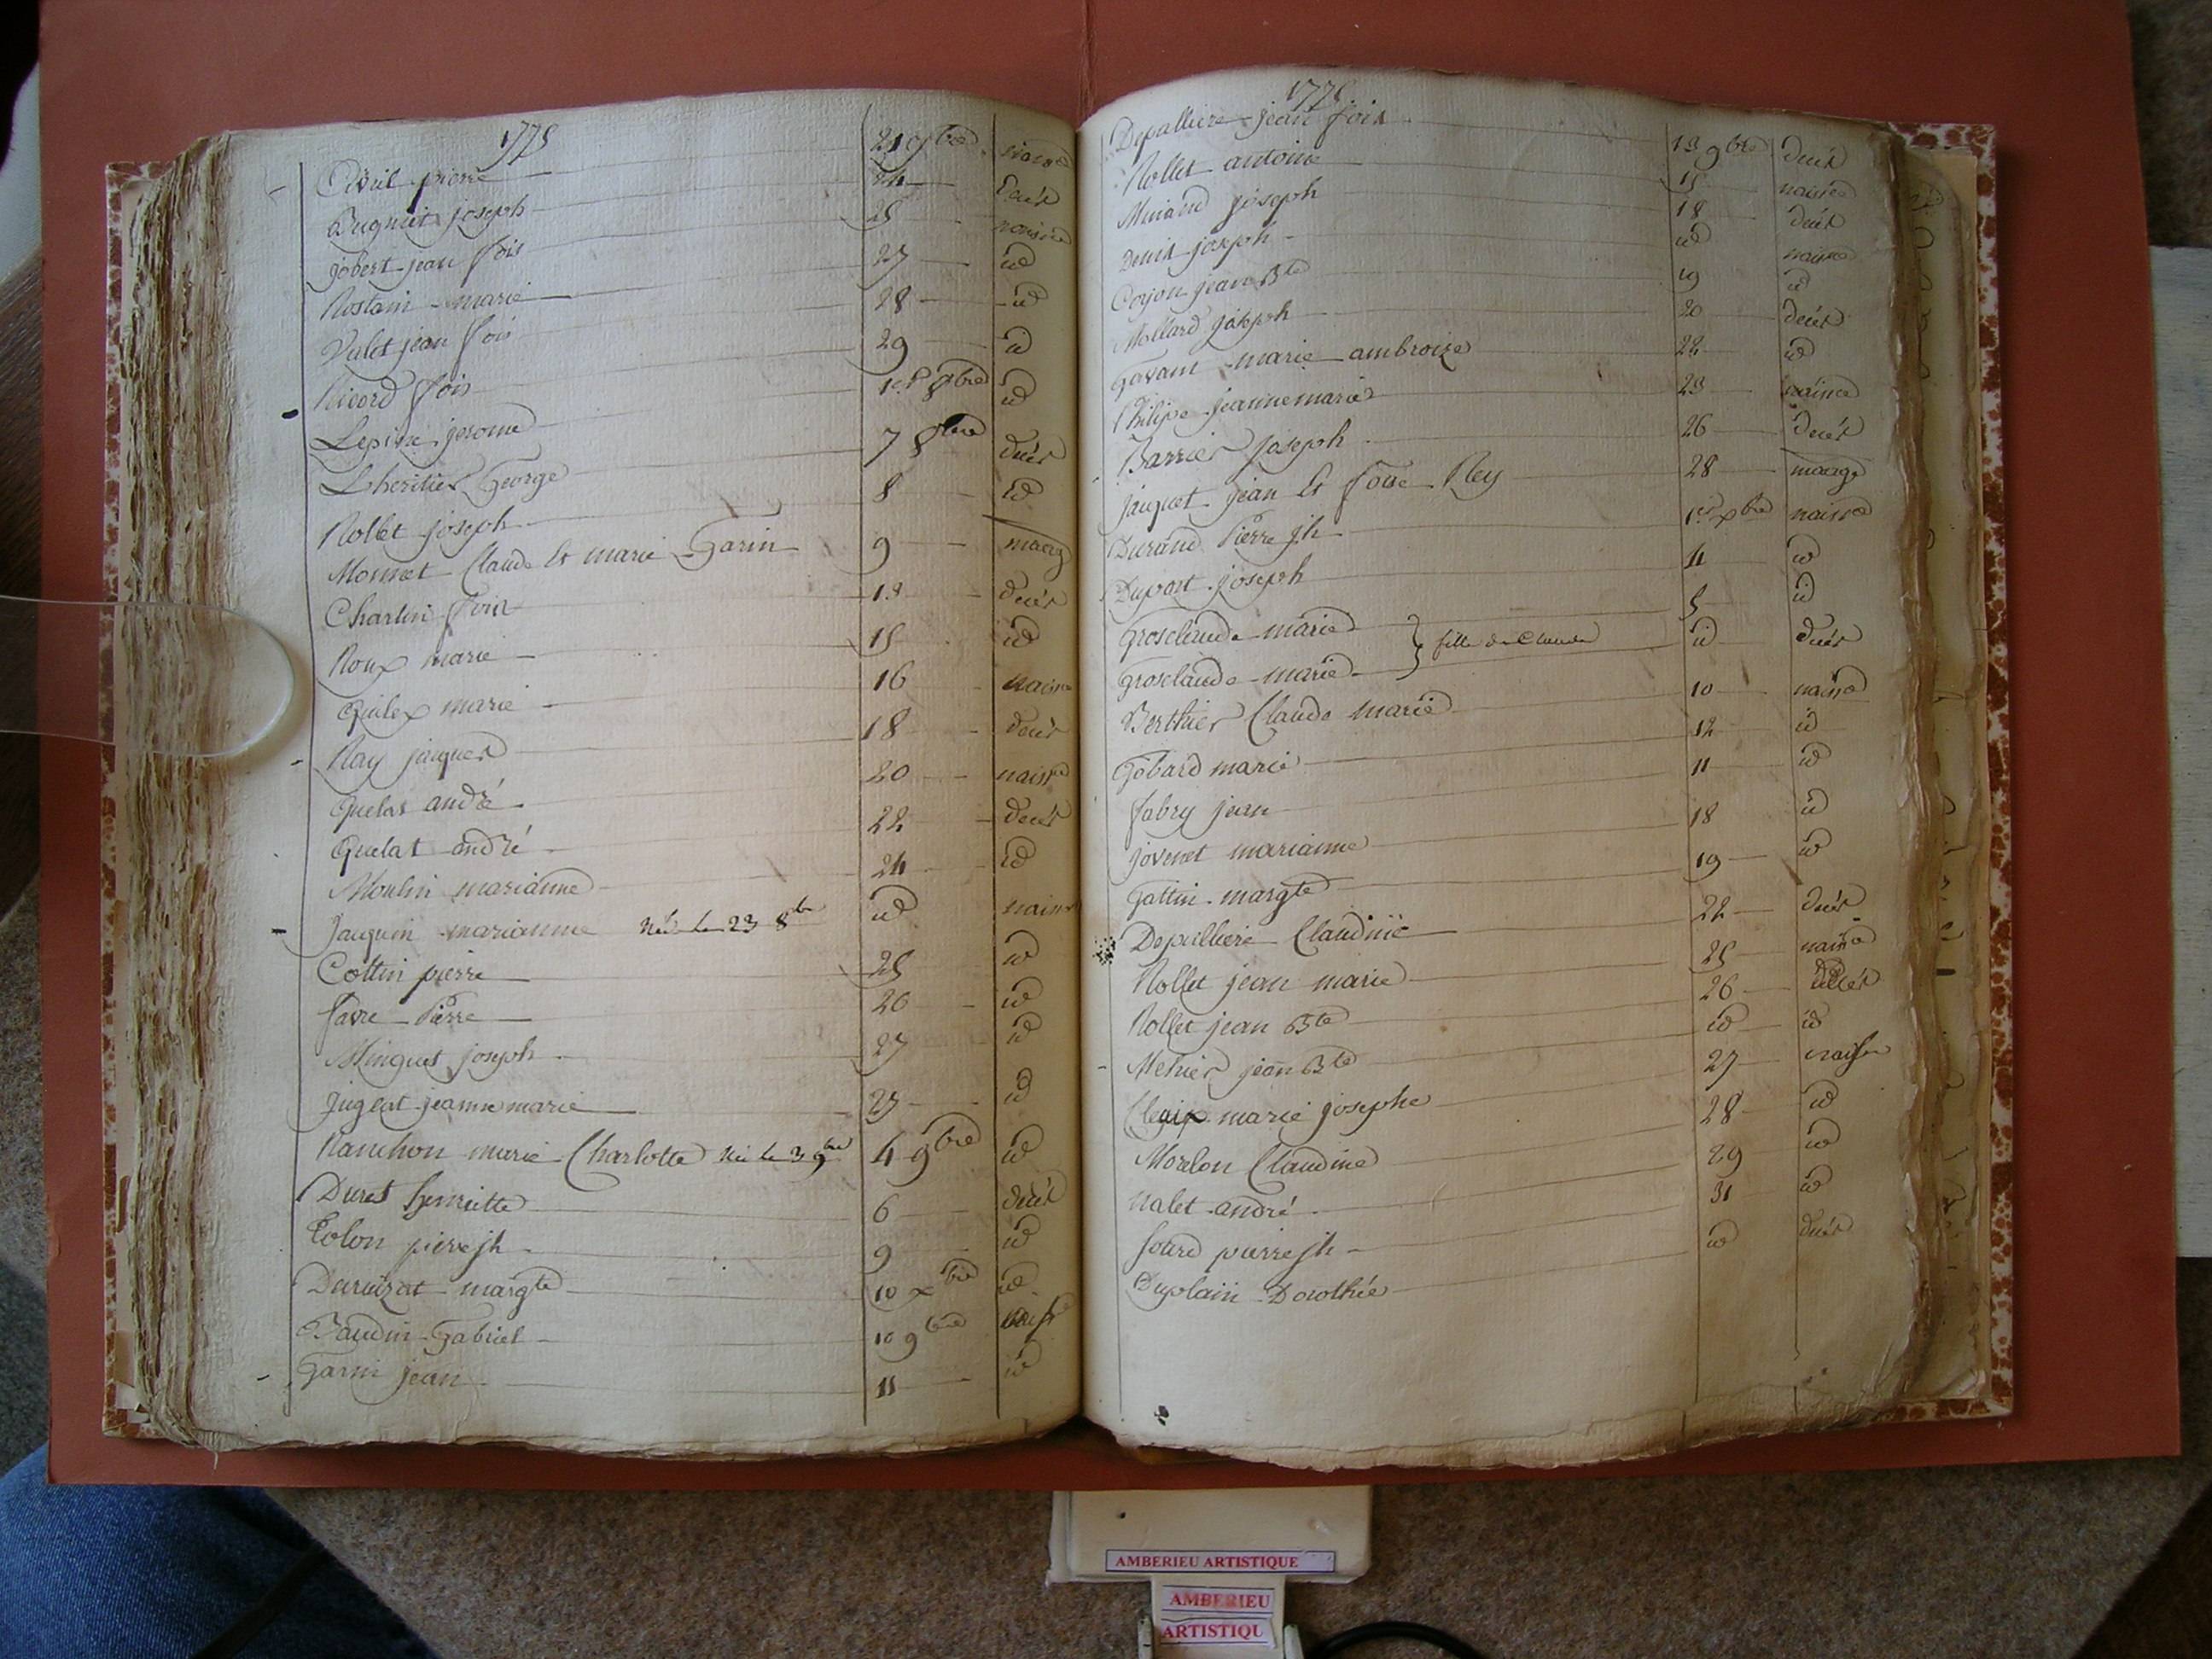 1775
pierre 21 9bre naisce
Bugniet joseph 24 Decès
jobert jean fois 25 naisce
Rostain marie 27 id
Valet jean fois 28 id
Ricord fois 29 id
Lepine jerome 1er 8bre id
Lheritier George 7 8bre Decès
Rollet joseph 8 id
Monnet Claude et marie Garin 9 mariag
Charlin fois 13 decès
Roux marie 15 id
marie 16 naisce
Ray jacques 18 decès
Quelat andré 20 naisce
Quelat andré 22 decès
Moulin marianne 24 id
Jauquin marianne née le 23 8bre id naisce
Cottin pierre 25 id
favre Pierre 26 id
Minguet joseph 27 id
jugeat jeanne marie 27 id
marie Charlotte née le 3 9bre 4 9bre id
Duret henriette 6 decès
Colon pierre jh 9 id
margte 10 xbre id
Baudin Gabriel 10 9bre naisce
Garin jean 11 id
1775
Depalliere jean fois 13 9bre decès
Rollet antoine 15 naisce
joseph 18 decès
Denis joseph id naisce
jean Bte 19 id
Mollard joseph 20 decès
marie ambroize 22 id
Philipe jeanne marie 23 naisce
Barrier joseph 26 decès
jauquet jean et foise Rey 28 mariage
Durand Pierre jh 1er xbre naisce
Dupont joseph 4 id
Grosclaude marie 5 id
fille de Claude
Grosclaude marie id decès
Berthier Claude marie 10 naisce
Gobard marie 12 id
fabry jean 11 id
jovenet marianne 18 id
Gottin margte 19 id
Depalliere Claudine 22 decès
Rollet jean marie 25 naisce
Rollet jean Bte 26 decès
jean Bte id id
marie josephe 27 naisce
Morelon Claudine 28 id
nalet andré 29 id
pierre jh 31 id
Duplain Dorothée id decès
AMBERIEU ARTISTIQUE
AMBERIEU
ARTISTIQU